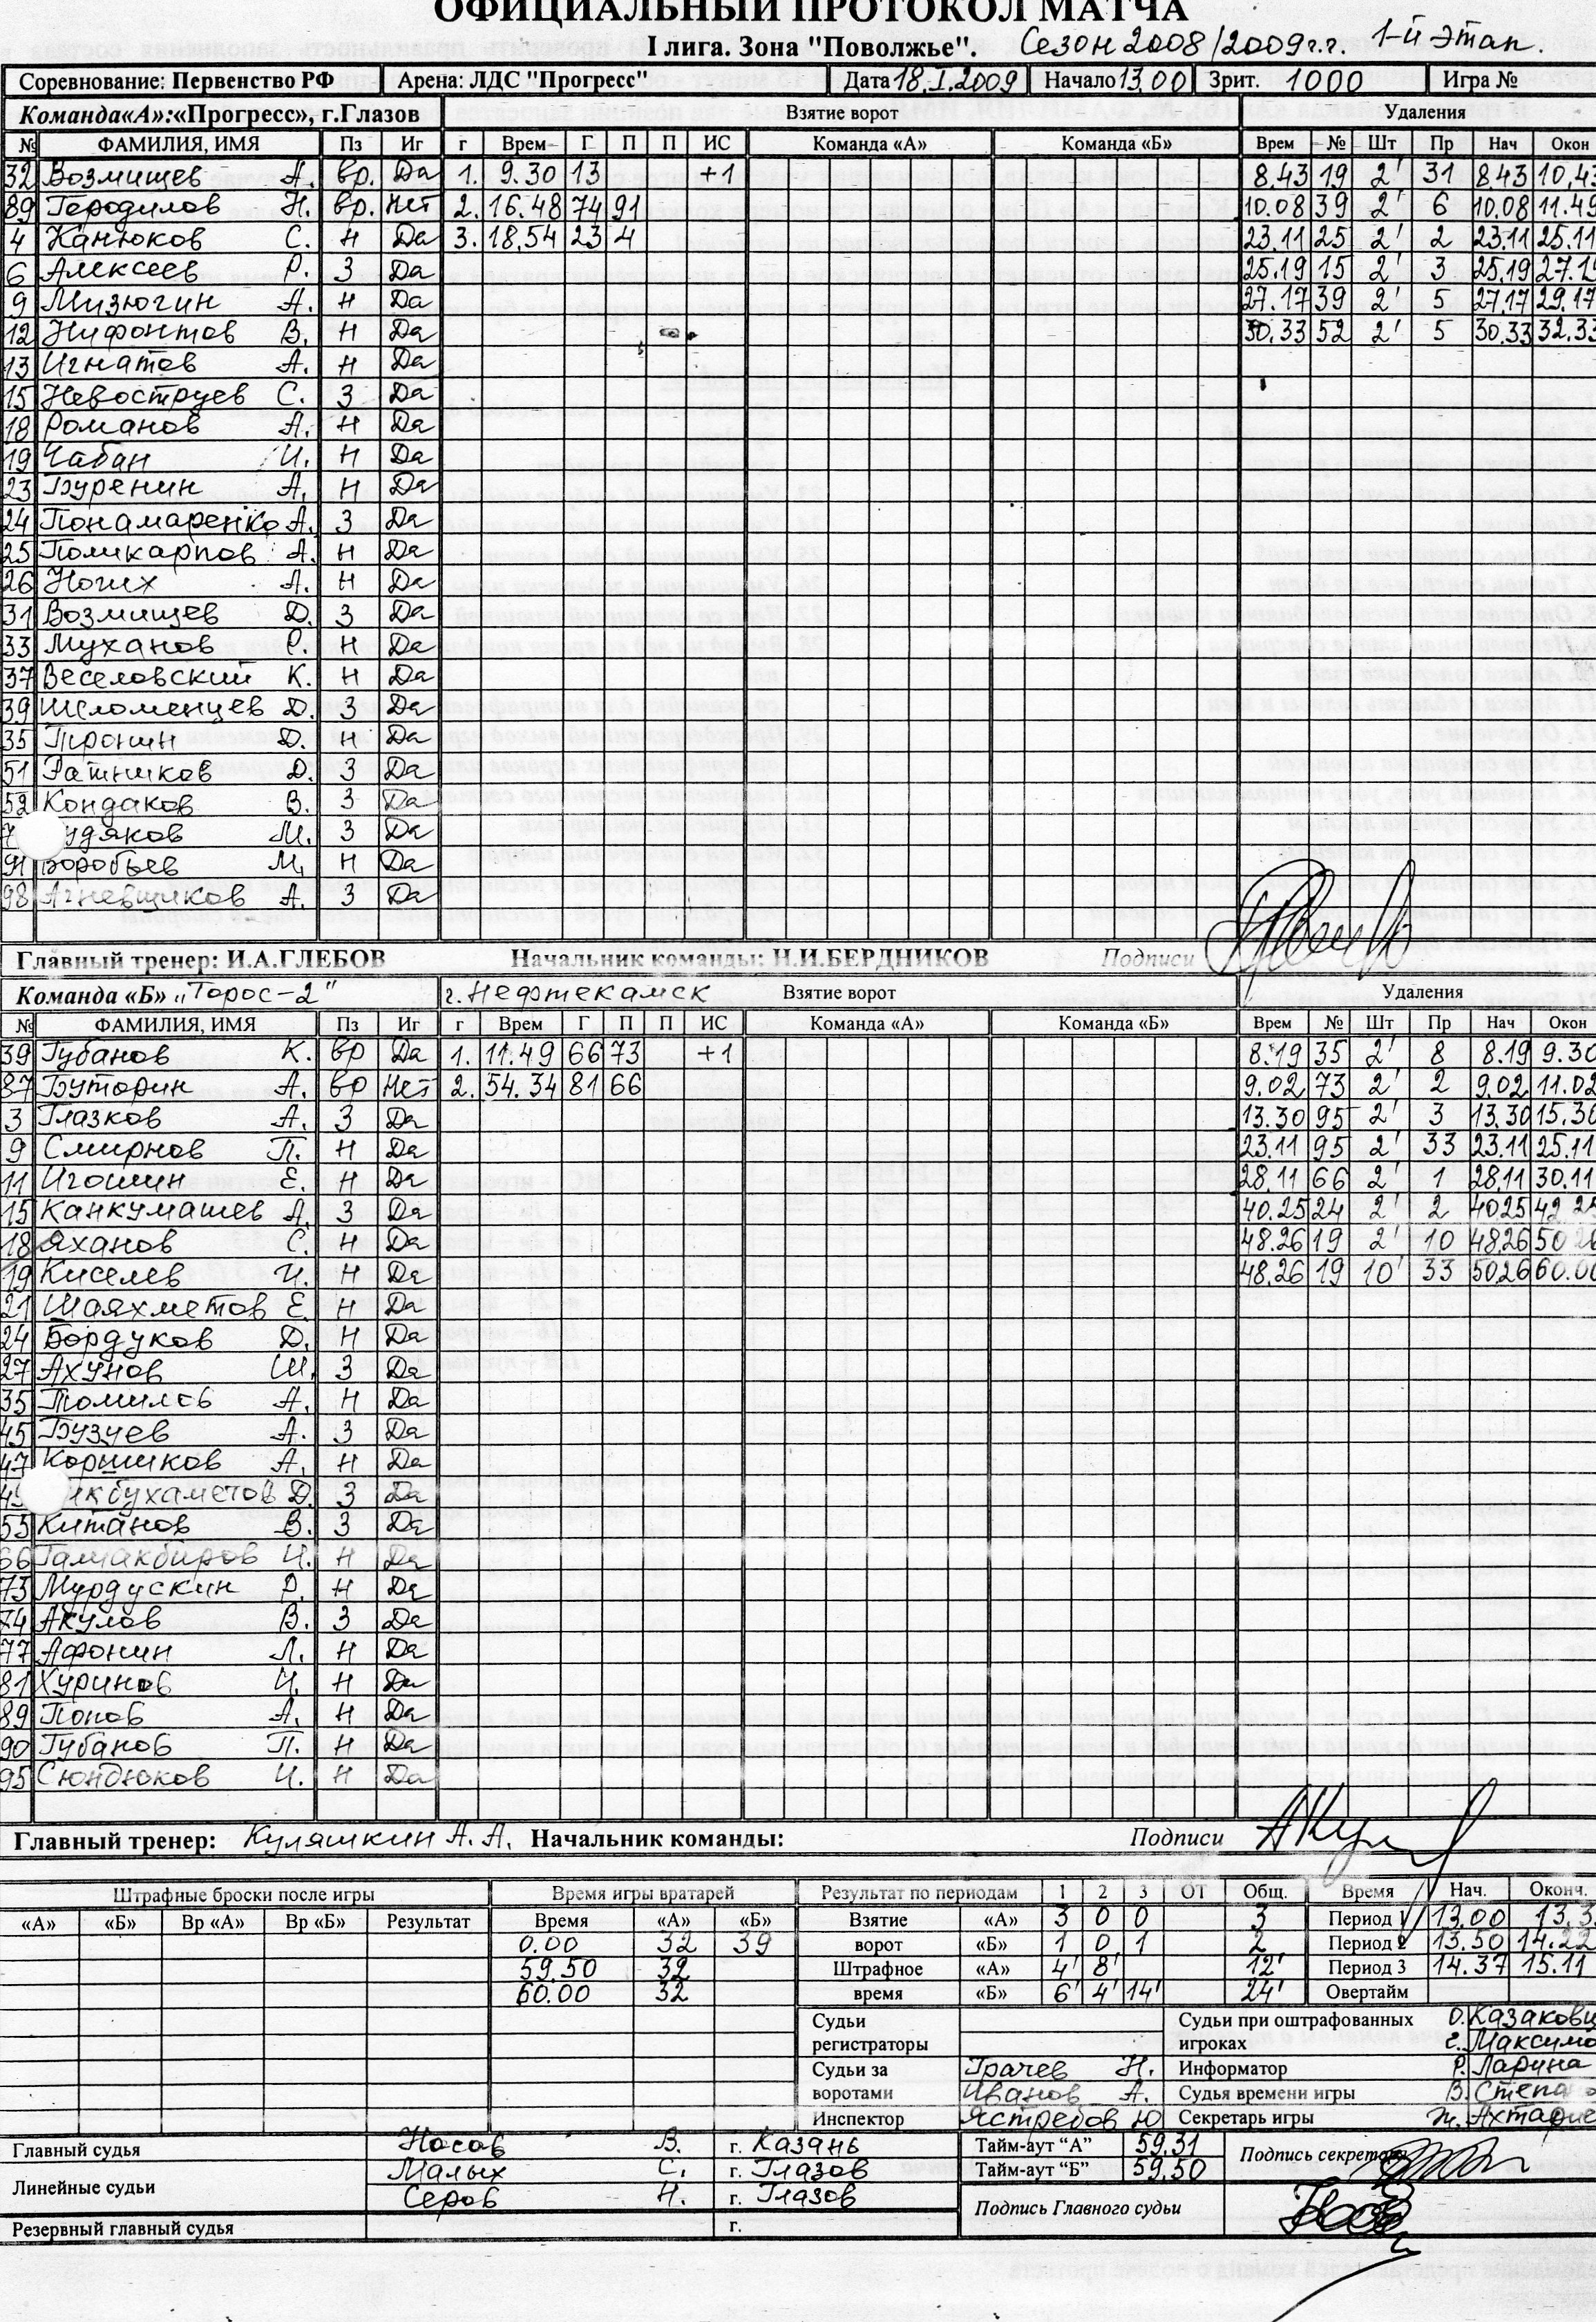 ОФИЦИАЛЬНЫЙ ПРОТОКОЛ МАТЧА
I лига. Зона "Поволжье". Сезон 2008/2009 г.г. 1-й этап.
Соревнование: Первенство РФ Арена: ЛДС "Прогресс" Дата 18.I.2009 Начало 13.00 Зрит. 1000 Игра №
Команда«А»:«Прогресс», г.Глазов Взятие ворот Удаления
№ ФАМИЛИЯ, ИМЯ Пз Иг г Врем Г П П ИС Команда «А» Команда «Б» Врем № Шт Пр Нач Окон
32 Возмищев А. вр. Да 1. 9.30 13 +1 8.43 19 2' 31 8.43 10,43
89 Геродилов Н. вр. Нет 2. 16.48 74 91 10.08 39 2' 6 10.08 11.49
4 Канюков С. Н Да 3. 18,54 23 4 23.11 25 2' 2 23.11 25.11
6 Алексеев Р. З Да 25.19 15 2' 3 25,19 27.19
9 Мизюгин А. Н Да 27.17 39 2' 5 27.17 29.17
12 Нифонтов В. Н Да 30.33 52 2' 5 30.33 32.33
13 Игнатов А. Н Да
15 Невоструев С. З Да
18 Романов А. Н Да
19 Чабан И. Н Да
23 Буренин А. Н Да
24 Понамаренко А. З Да
25 Поликарпов А. Н Да
26 Ногих А. Н Да
31 Возмищев Д. З Да
33 Муханов Р. Н Да
37 Веселовский К. Н Да
39 Шломенцев Д. З Да
35 Тронин Д. Н Да
51 Ратников Д. З Да
52 Кондаков В. З Да
7 удяков М. З Да
91 Воробьев М. Н Да
98 Агневщиков А. З Да
Главный тренер: И.А.ГЛЕБОВ Начальник команды: Н.И.БЕРДНИКОВ Подписи
Команда «Б» „Торос-2" г. Нефтекамск Взятие ворот Удаления
№ ФАМИЛИЯ, ИМЯ Пз Иг г Врем Г П П ИС Команда «А» Команда «Б» Врем № Шт Пр Нач Окон
39 Губанов К. вр Да 1. 11.49 66 73 +1 8.19 35 2' 8 8.19 9.30
87 Буторин А. вр Нет 2. 54.34 81 66 9.02 73 2' 2 9.02 11.02
3 Глазков А. З Да 13.30 95 2' 3 13.30 15.30
9 Смирнов П. Н Да 23.11 95 2' 33 23.11 25.11
11 Игошин Е. Н Да 28.11 66 2' 1 28,11 30.11
15 Канкумашев А. З Да 40.25 24 2' 2 40.25 42.25
18 Яханов С. Н Да 48.26 19 2' 10 48.26 50 26
19 Киселев И. Н Да 48.26 19 10' 33 50.26 60.00
21 Шаяхметов Е. Н Да
24 Бордуков Д. Н Да
27 Ахунов Ш. З Да
35 Томилов А. Н Да
45 Бузуев А. З Да
47 Коршиков А. Н Да
49 икбухаметов Д. З Да
53 Китанов В. З Да
66 Галиакбиров И. Н Да
73 Мурдускин Д. Н Да
74 Акулов В. З Да
77 Афонин Л. Н Да
81 Хуринов И. Н Да
89 Попов А. Н Да
90 Губанов П. Н Да
95 Сюндюков И. Н Да
Главный тренер: Куляшкин А. А. Начальник команды: Подписи
Штрафные броски после игры Время игры вратарей Результат по периодам 1 2 3 ОТ Общ. Время Нач. Оконч.
«А» «Б» Вр «А» Вр «Б» Результат Время «А» «Б» Взятие «А» 3 0 0 3 Период 1 13.00 13.3
0.00 32 39 ворот «Б» 1 0 1 2 Период 2 13.50 14.22
59.50 32 Штрафное «А» 4' 8' 12' Период 3 14.37 15.11
60.00 32 время «Б» 6' 4' 14' 24' Овертайм
Судьи регистраторы Судьи при оштрафованных игроках О. Казаковц
г. Максимо
Судьи за воротами Грачев Н. Информатор Р. Ларина
Иванов А. Судья времени игры В. Степано
Инспектор Ястребов Ю Секретарь игры Ж. Ахтарие
Главный судья Носов В. г. Казань Тайм-аут "А" 59.31 Подпись секретаря
Линейные судьи Малых С. г. Глазов Тайм-аут "Б" 59.50
Серов Н. г. Глазов Подпись Главного судьи
Резервный главный судья г.